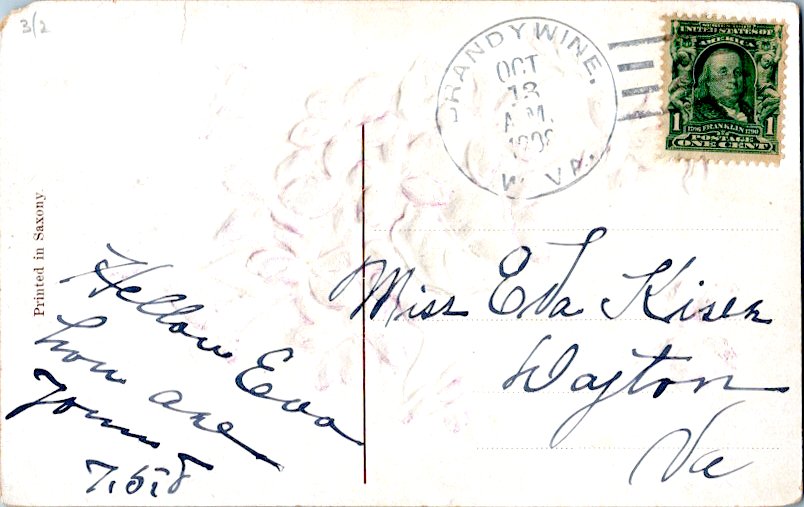 3/2
BRANDYWINE,
OCT
13
A.M.
1908
W. VA.
UNITED STATES OF
AMERICA
1 1706 FRANKLIN 1790 1
POSTAGE
ONE CENT
Printed in Saxony.
Miss Eva Kiser
Dayton
Va
Hellow Eva
how are